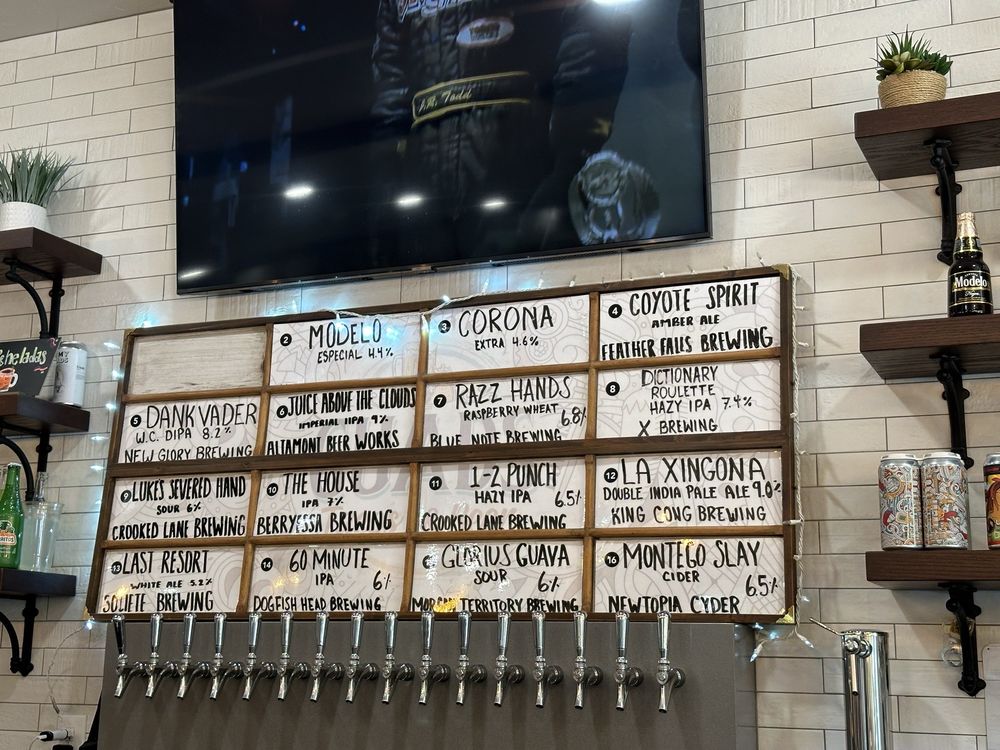 J.R. Todd
2 MODELO
ESPECIAL 4.4%
3 CORONA
EXTRA 4.6%
4 COYOTE SPIRIT
AMBER ALE
FEATHER FALLS BREWING
5 DANK VADER
W.C. DIPA 8.2%
NEW GLORY BREWING
6 JUICE ABOVE THE CLOUDS
IMPERIAL IIPA 9%
ALTAMONT BEER WORKS
7 RAZZ HANDS
RASPBERRY WHEAT 6.8%
BLUE NOTE BREWING
8 DICTIONARY
ROULETTE
HAZY IPA 7.4%
X BREWING
9 LUKES SEVERED HAND
SOUR 6%
CROOKED LANE BREWING
10 THE HOUSE
IPA 7%
BERRYESSA BREWING
11 1-2 PUNCH
HAZY IPA 6.5%
CROOKED LANE BREWING
12 LA XINGONA
DOUBLE INDIA PALE ALE 9.0%
KING CONG BREWING
13 LAST RESORT
WHITE ALE 5.2%
SOCIETE BREWING
14 60 MINUTE
IPA 6%
DOGFISH HEAD BREWING
15 GLORIUS GUAVA
SOUR 6%
MORGAN TERRITORY BREWING
16 MONTEGO SLAY
CIDER 6.5%
NEWTOPIA CYDER
Modelo
heladas